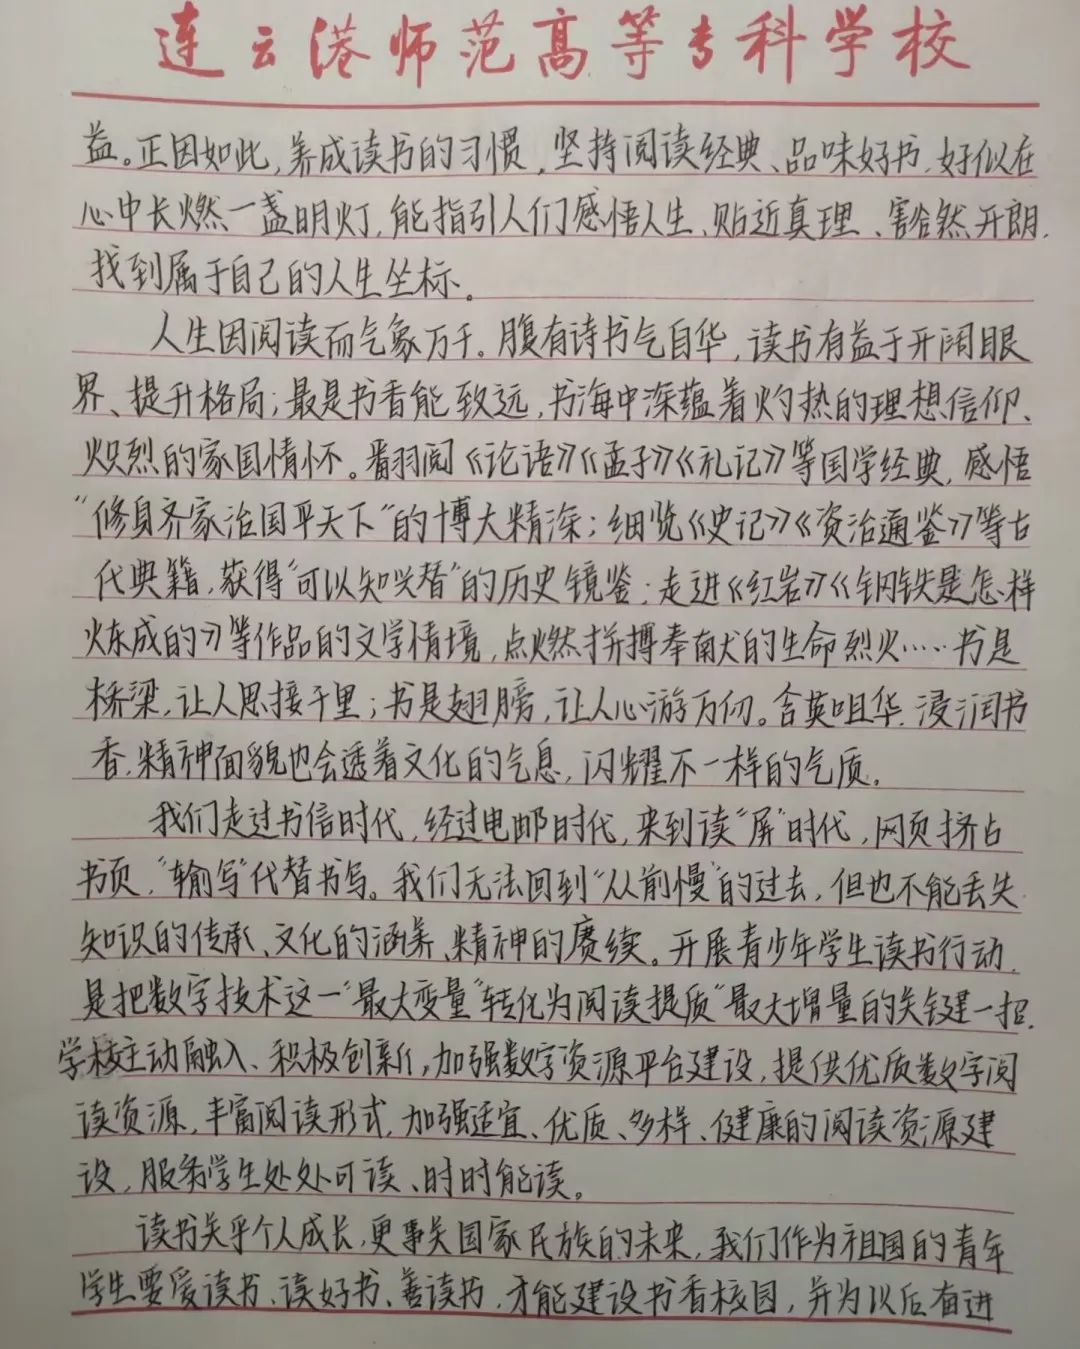 连云港师范高等专科学校
益。正因如此,养成读书的习惯,坚持阅读经典、品味好书,好似在
心中长燃一盏明灯,能指引人们感悟人生、贴近真理、豁然开朗,
找到属于自己的人生坐标。
人生因阅读而气象万千。腹有诗书气自华,读书有益于开阔眼
界、提升格局;最是书香能致远,书海中深蕴着灼热的理想信仰、
炽烈的家国情怀。翻阅《论语》《孟子》《礼记》等国学经典,感悟
“修身齐家治国平天下”的博大精深;细览《史记》《资治通鉴》等古
代典籍,获得“可以知兴替”的历史镜鉴;走进《红岩》《钢铁是怎样
炼成的》等作品的文学情境,点燃拼搏奉献的生命烈火……书是
桥梁,让人思接千里;书是翅膀,让人心游万仞。含英咀华,浸润书
香,精神面貌也会透着文化的气息,闪耀不一样的气质。
我们走过书信时代,经过电邮时代,来到读“屏”时代,网页挤占
书页,“输写”代替书写。我们无法回到“从前慢”的过去,但也不能丢失
知识的传承、文化的涵养、精神的赓续。开展青少年学生读书行动,
是把数字技术这一“最大变量”转化为阅读提质“最大增量的关键一招,
学校主动融入、积极创新,加强数字资源平台建设,提供优质数字阅
读资源,丰富阅读形式,加强适宜、优质、多样、健康的阅读资源建
设,服务学生处处可读、时时能读。
读书关乎个人成长,更事关国家民族的未来,我们作为祖国的青年
学生要爱读书、读好书、善读书,才能建设书香校园,并为以后奋进